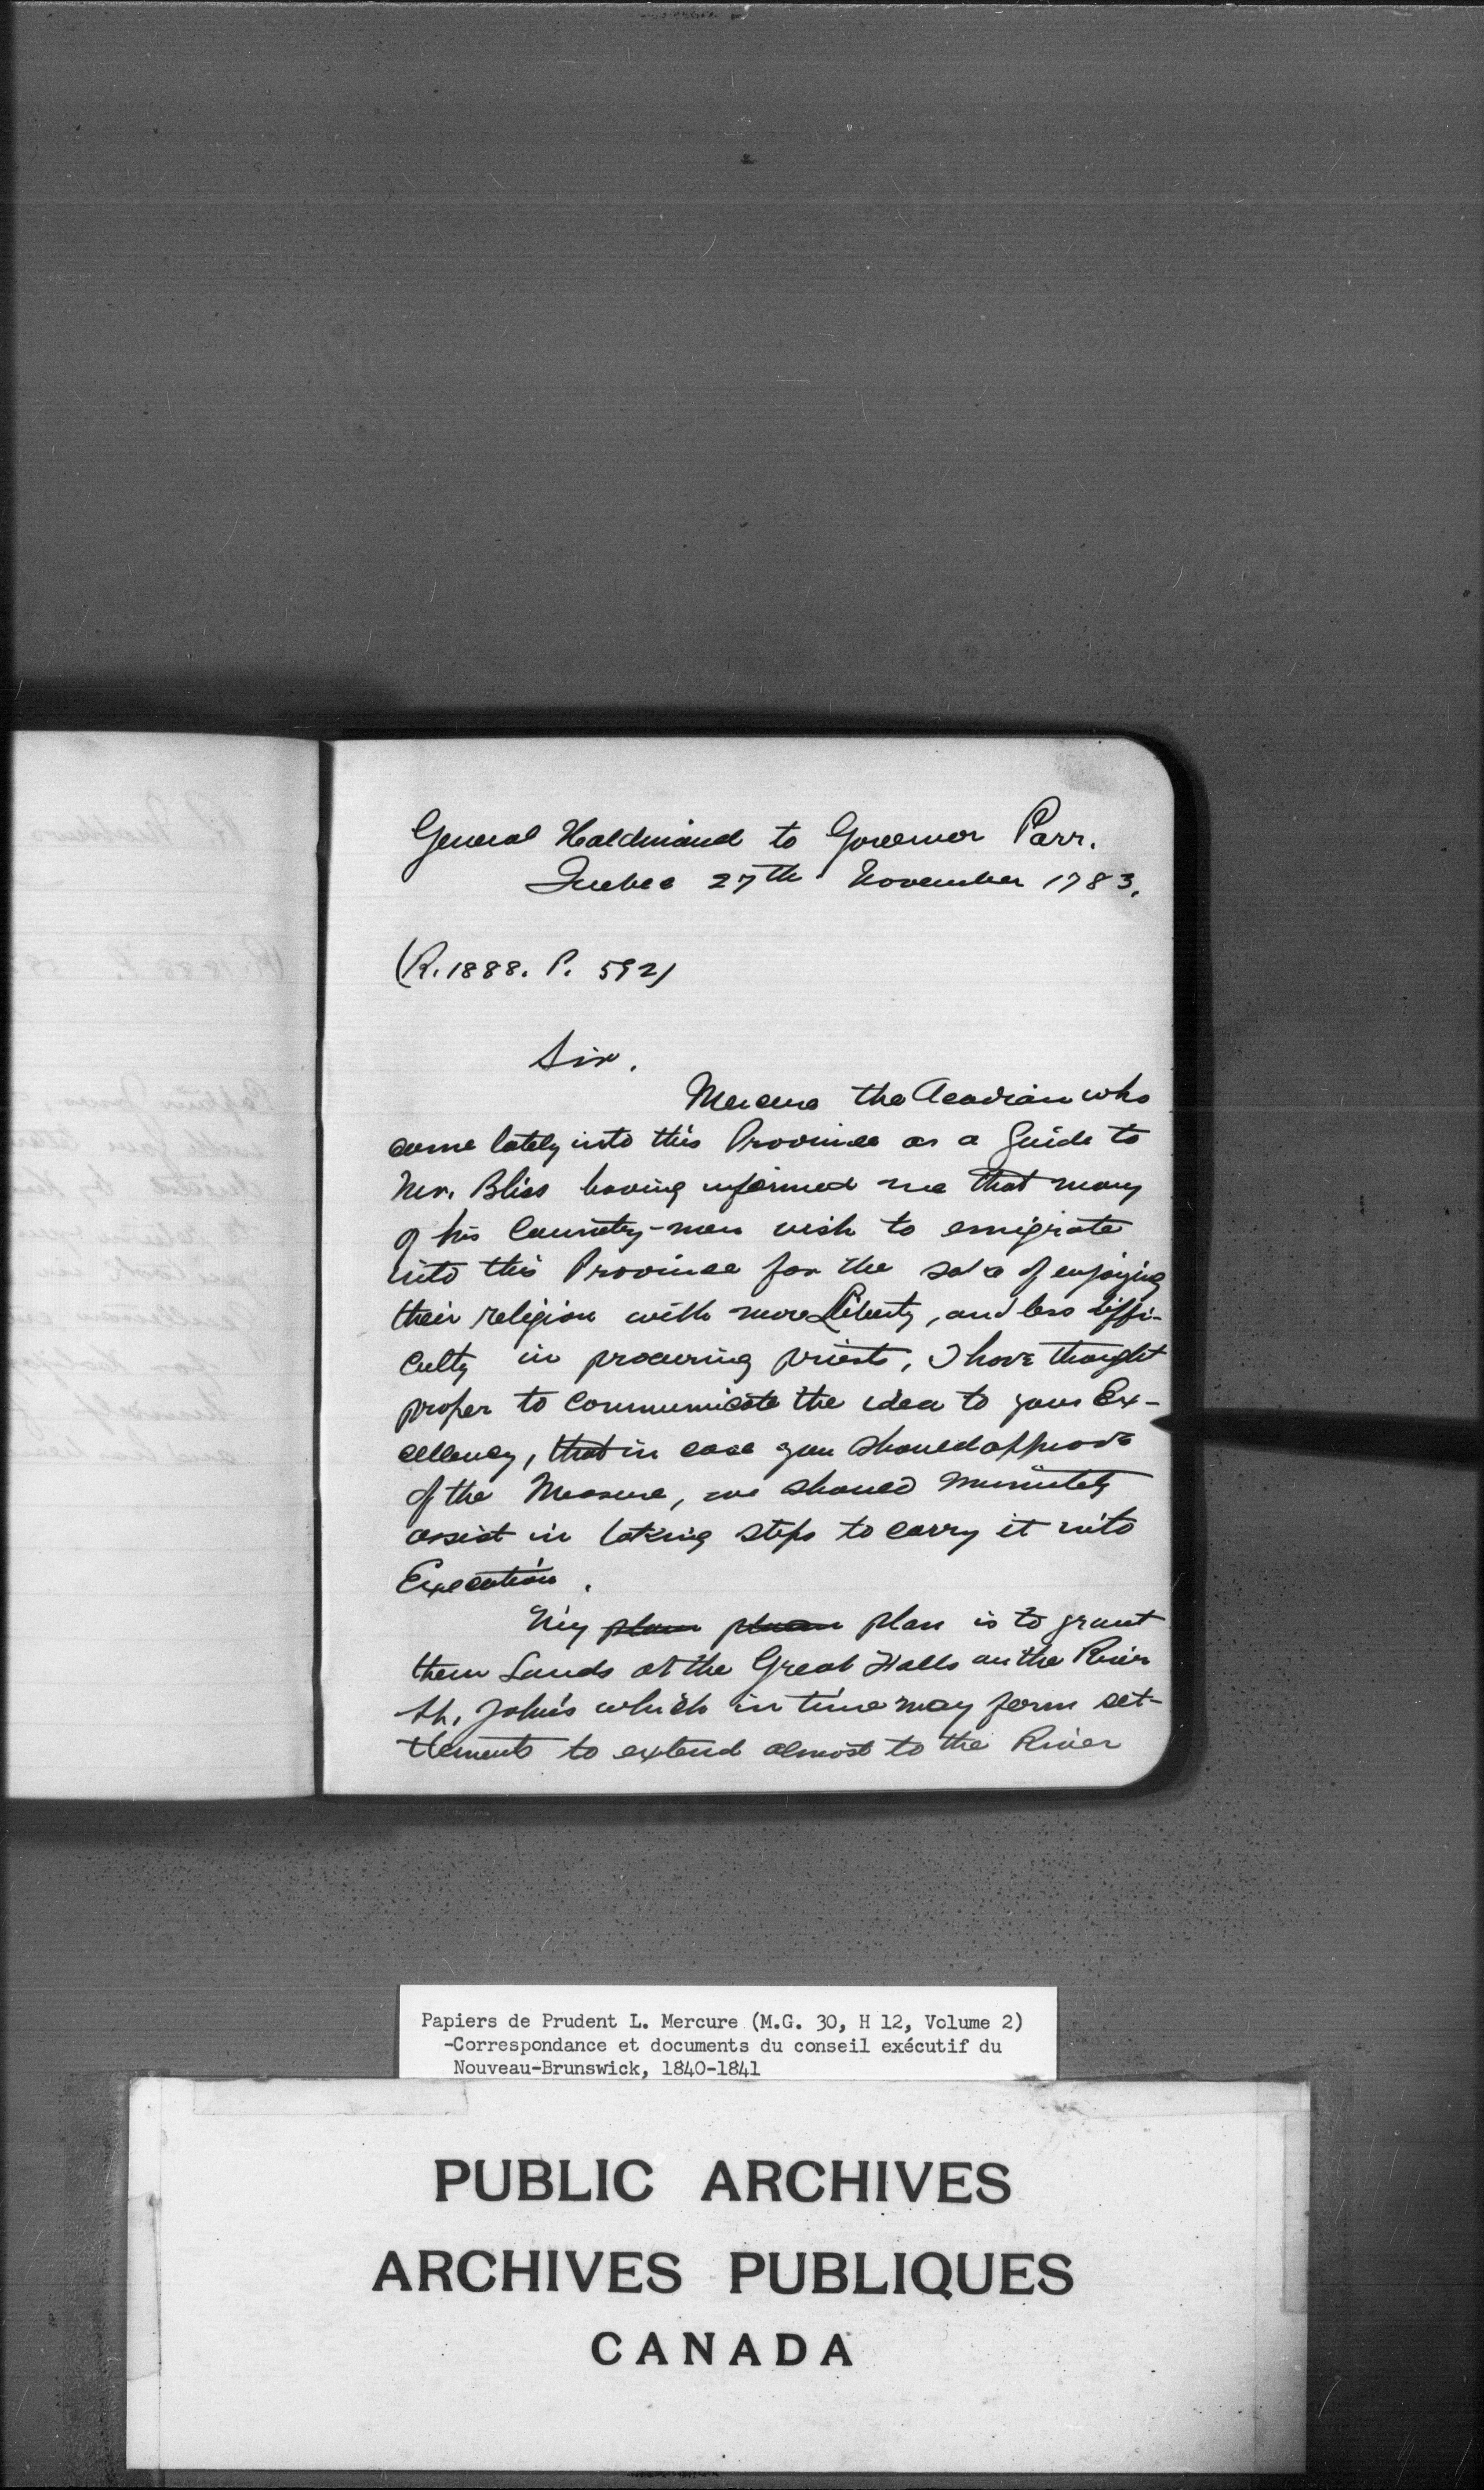 General Haldimand to Governor Parr.
Quebec 27th November 1783.
(R. 1888. P. 592)
Sir.
Mercure the Acadian who
came lately into this Province as a Guide to
Mr. Bliss having informed me that many
of his Country-men wish to emigrate
into this Province for the sake of enjoying
their religion with more Liberty, and less diffi-
culty in procuring priests, I have thought
proper to communicate the idea to your Ex-
cellency, that in case you should approve
of the Measure, we should minutely
assist in taking steps to carry it into
Execution.
My plan plan plan is to grant
them Lands at the Great Falls on the River
St. John's which in time may form set-
tlements to extend almost to the River
Papiers de Prudent L. Mercure (M.G. 30, H 12, Volume 2)
-Correspondance et documents du conseil exécutif du
Nouveau-Brunswick, 1840-1841
PUBLIC ARCHIVES
ARCHIVES PUBLIQUES
CANADA